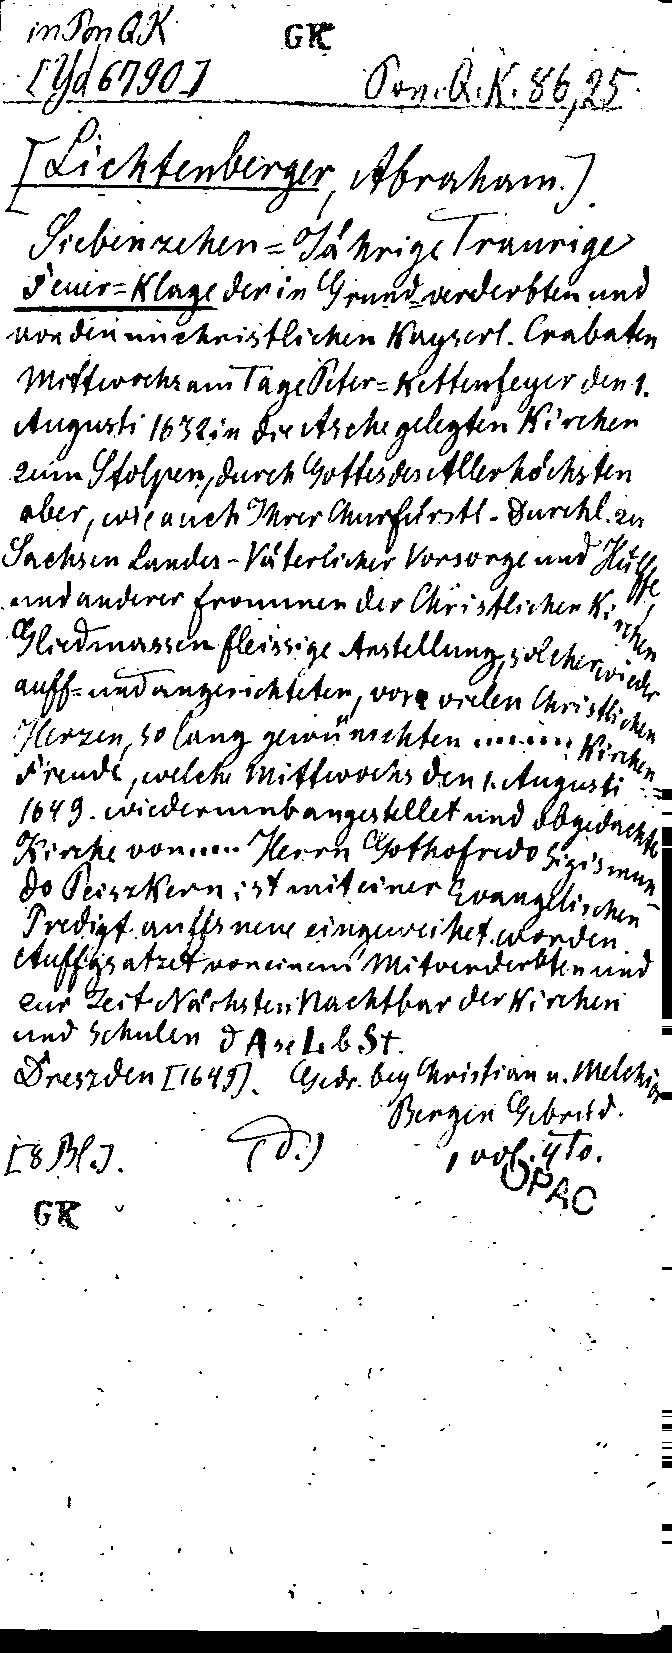 in Pon Q K
GK
[Yd 6790]
Pon. Q. K. 86, 25.
[Lichtenberger, Abraham.]
Siebenzehen=Jährige Traurige
Feuer=Klage der in Grund verderbten und
von den unchristlichen Kayserl. Crabaten
Mittwochs am Tage Peter=Kettenfeyer den 1.
Augusti 1632 in die Asche gelegten Kirchen
zum Stolpen, durch Gottes des Allerhöchsten
aber, wie auch Ihrer Churfürstl. Durchl. zu
Sachsen Landes-Väterlicher Vorsorge und Hülffe,
und anderer frommen der Christlichen Kirchen
Gliedmassen fleissige Anstellung, solcher wieder
auff= und angerichteten, von vielen Christlichen
Herzen, so lang gewünschten ....... Kirchen
Freude, welche Mittwochs den 1. Augusti
1649. wiederumb angestellet und obgedachte
Kirche von .... Herrn Gothofredo Sigismun-
do Peiszkern, ist mit einer Evangelischen
Predigt auffs neue eingeweihet worden.
Auffgsatzet von einem Mitverderbten und
zur Zeit Nächsten Nachtbar der Kirchen
und Schulen d A se L. b St.
Dreszden [1649]. Gedr. bey Christian u. Melchior
Bergen Gebrüd.
[8 Bl.]. (d.) 1 vol. 4to.
OPAC
GK